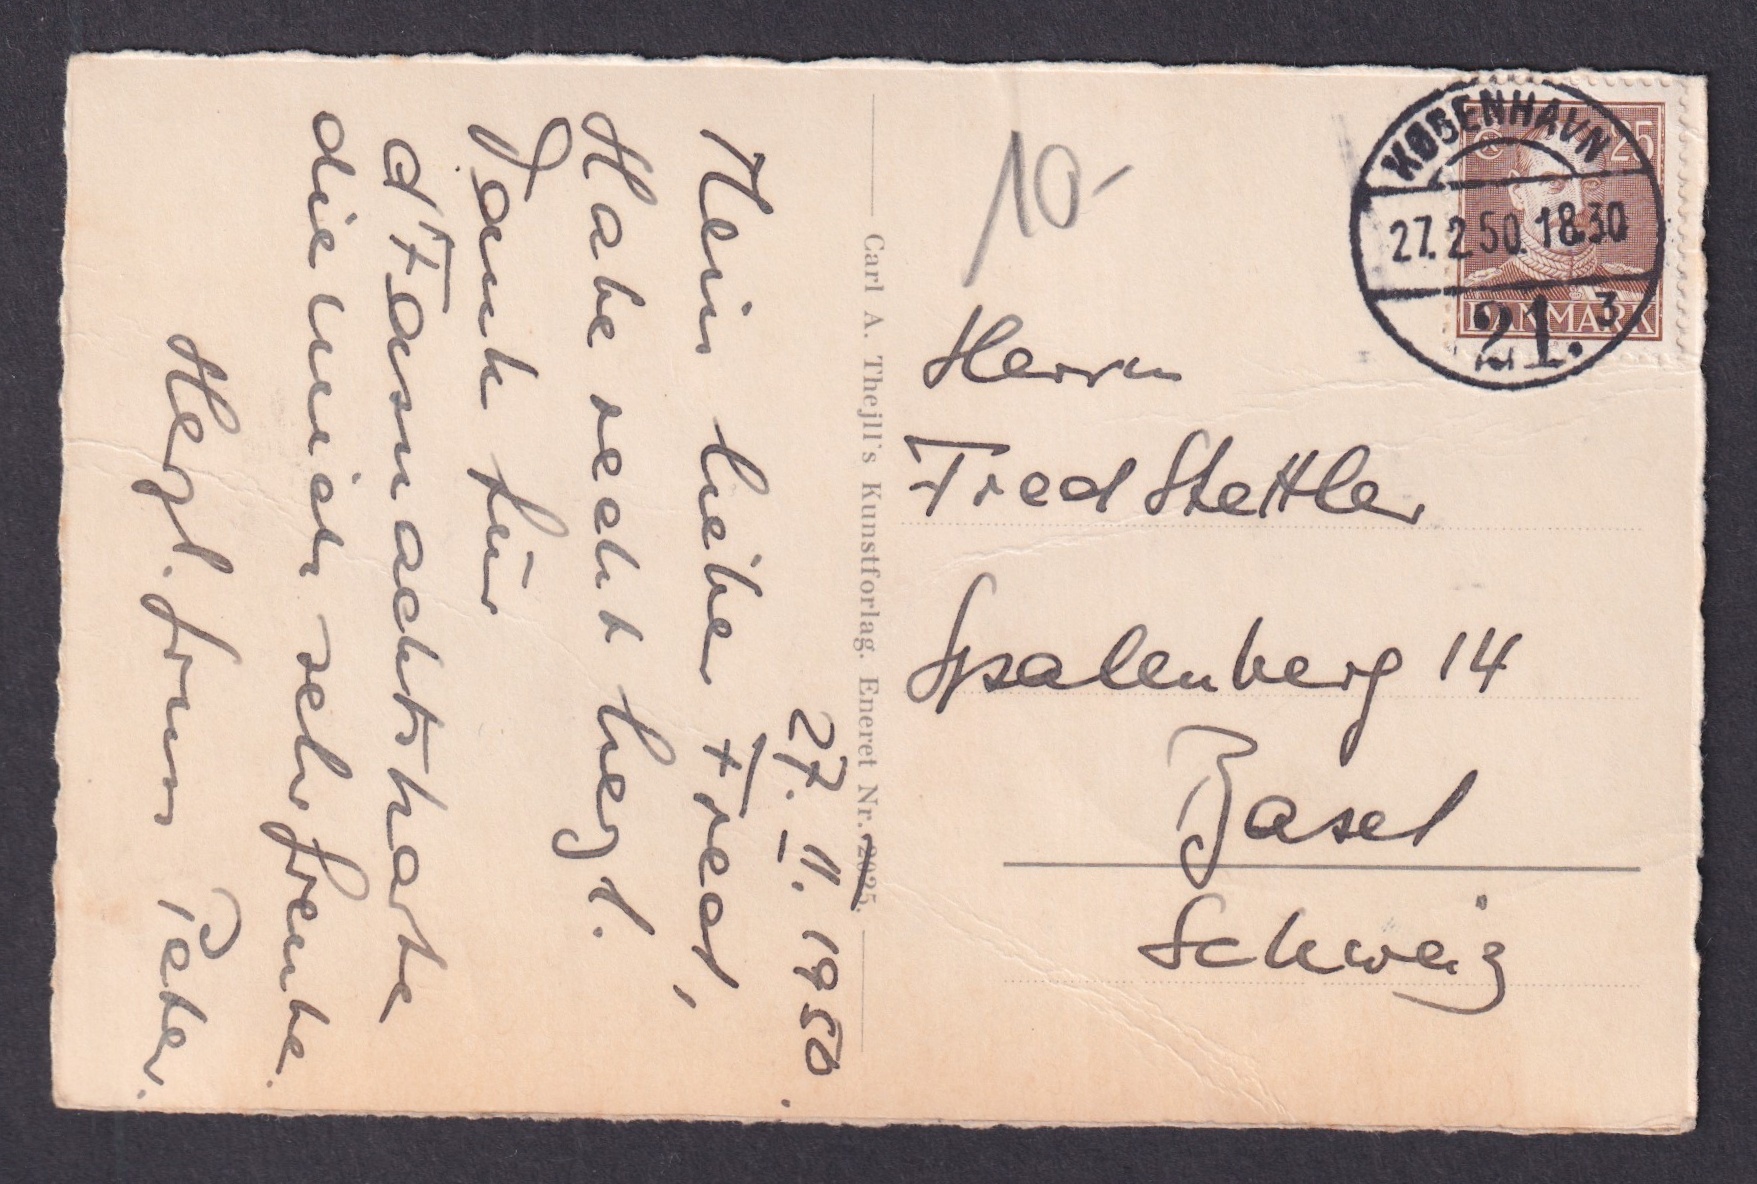 27. II. 1950.
Mein lieber Fred,
Habe recht herzl.
Dank für
d'Fasnachtskarte
die mich sehr freute.
Herzl. Peter.
Carl A. Thejll's Kunstforlag. Eneret Nr. 2025.
10-
KØBENHAVN
27.2.50. 18.30
21. 3
25
DANMARK
Herrn
Fred Stettler
Spalenberg 14
Basel
Schweiz